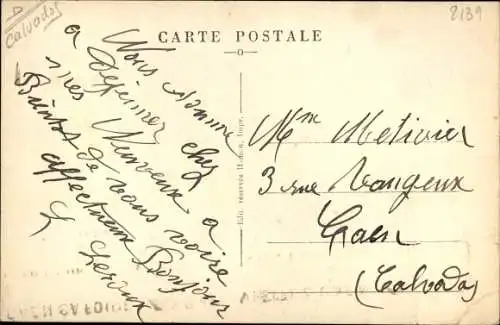 Calvados
8139
CARTE POSTALE
Nous sommes
a Déjeuner chez
mes Neuveux a
Bientot de vous voire
affectueux Bonjour
Leroux
Mme Metivier
3 rue Vaugeux
Caen
(Calvados)